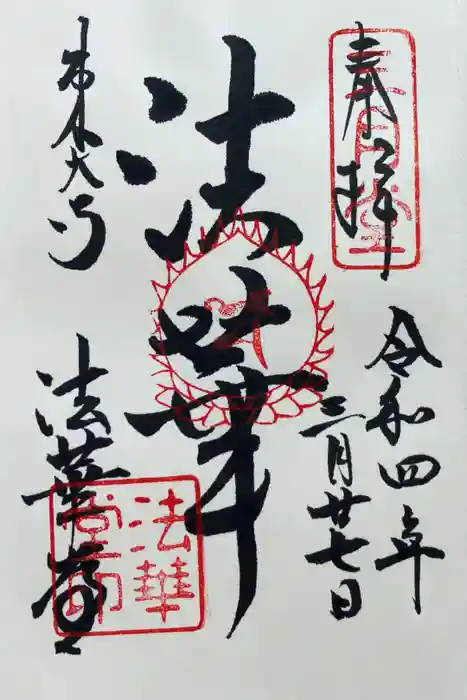 奉拝
三月堂
令和四年
三月廿七日
法華
東大寺
法華堂
法華
堂印